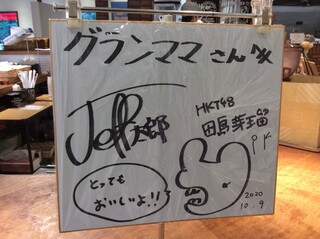 グランママさん江
Jeff太郎
HKT48
田島芽瑠
とっても
おいしいよ!!
2020
10.9